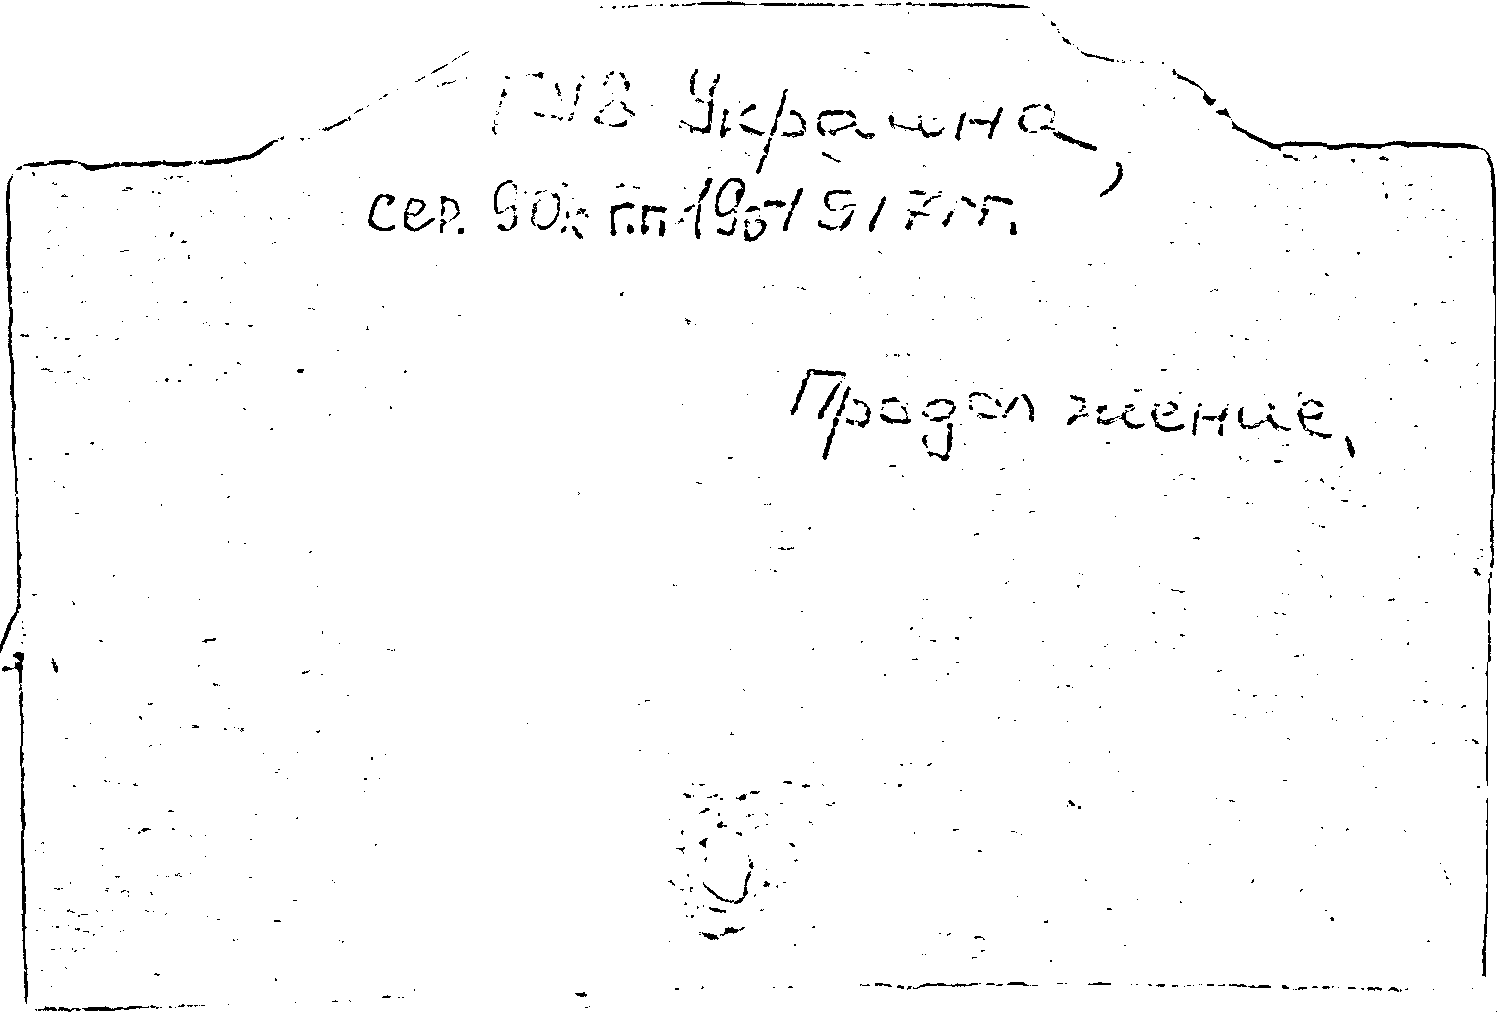 ГУВ Украина,
сер. 90х гг. 19 1917 гг.
Продолжение.